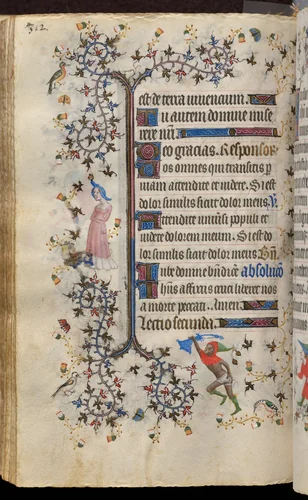 312
est de terra viventium.
Tu autem domine mise
rere nr̄i
Deo gracias. Respons
os omnes qui transitis p̲
viam attendite et videte. Si est
dolor similis sicut dolor meus. V
Attendite universi populi et
videte dolorem meum. Si est do
lor similis sicut dolor meus.
Iube domne bn̄dic̄e absoluco
ih̄us assit
a morte peccati. Amen
Lectio secunda.